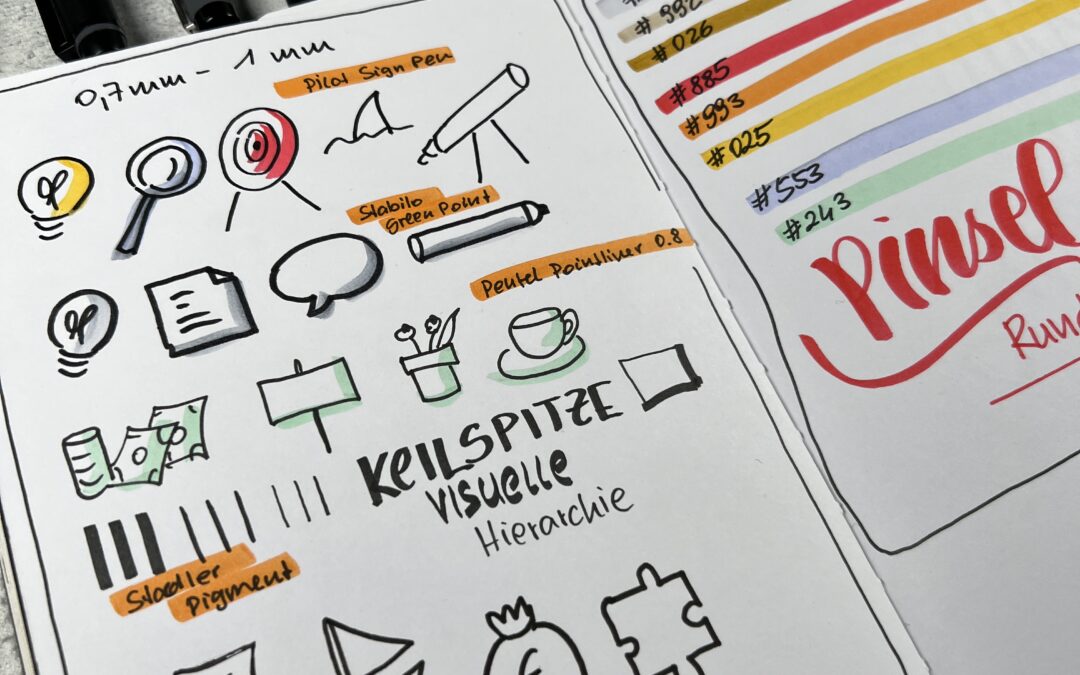 0,7mm - 1 mm
Pilot Sign Pen
Stabilo
Green Point
Pentel Pointliner 0.8
KEILSPITZE
VISUELLE
Hierarchie
Staedtler
Pigment
€
# 992
# 026
# 885
# 993
# 025
# 553
# 243
Pinsel